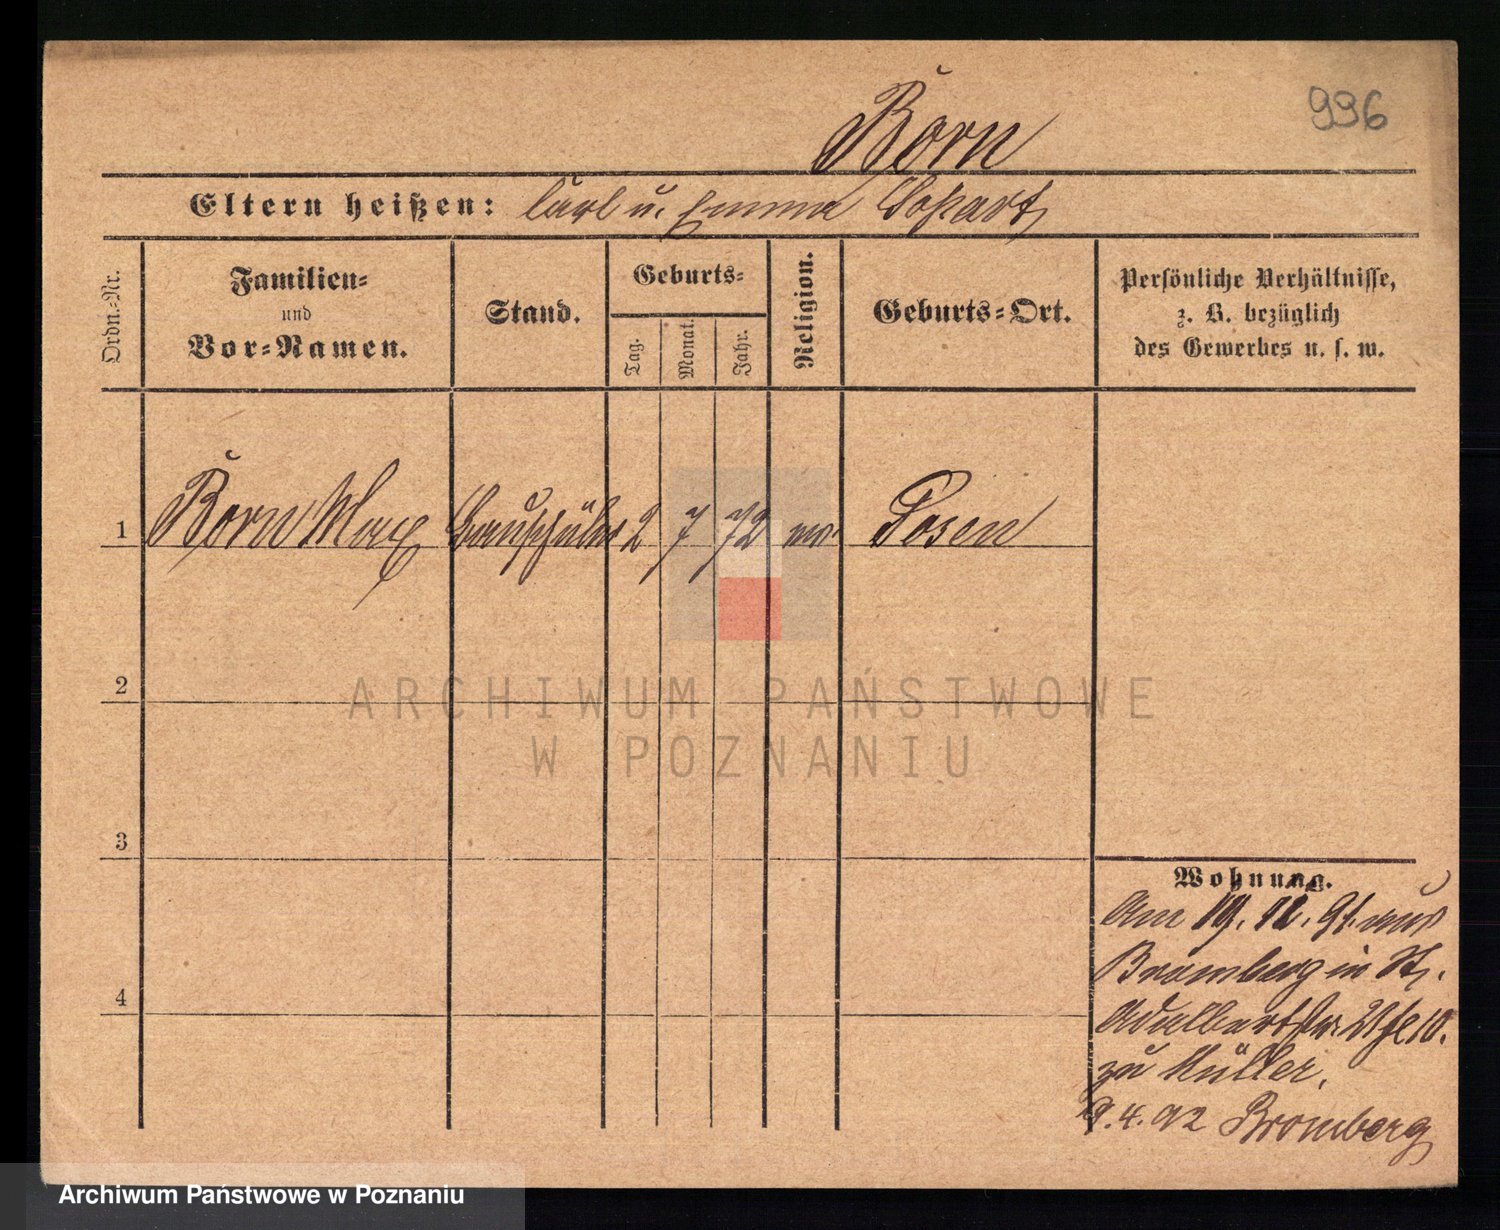 Born
996
Eltern heißen: Carl u. Emma Sopart
Ordn.-Nr.
Familien-
und
Vor-Namen.
Stand.
Geburts-
Tag.
Monat.
Jahr.
Religion.
Geburts-Ort.
Persönliche Verhältnisse,
z. B. bezüglich
des Gewerbes u. s. w.
1 Born Max Bauschüler 2 7 72 ev. Posen
2
3
4
Wohnung.
Am 19. 12. 91. aus
Bromberg in St.
Adalbertstr.
zu Müller.
9.4.92 Bromberg
ARCHIWUM PAŃSTWOWE
W POZNANIU
Archiwum Państwowe w Poznaniu